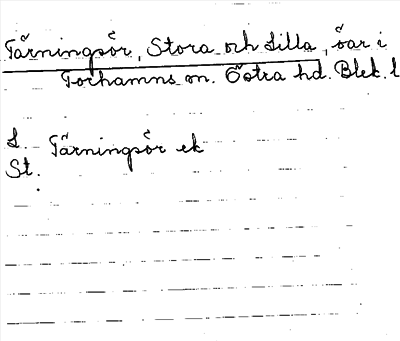 Tärningsör, Stora och Lilla, öar i
Torhamns sn. Östra hd. Blek. l
L. Tärningsör ek
St.